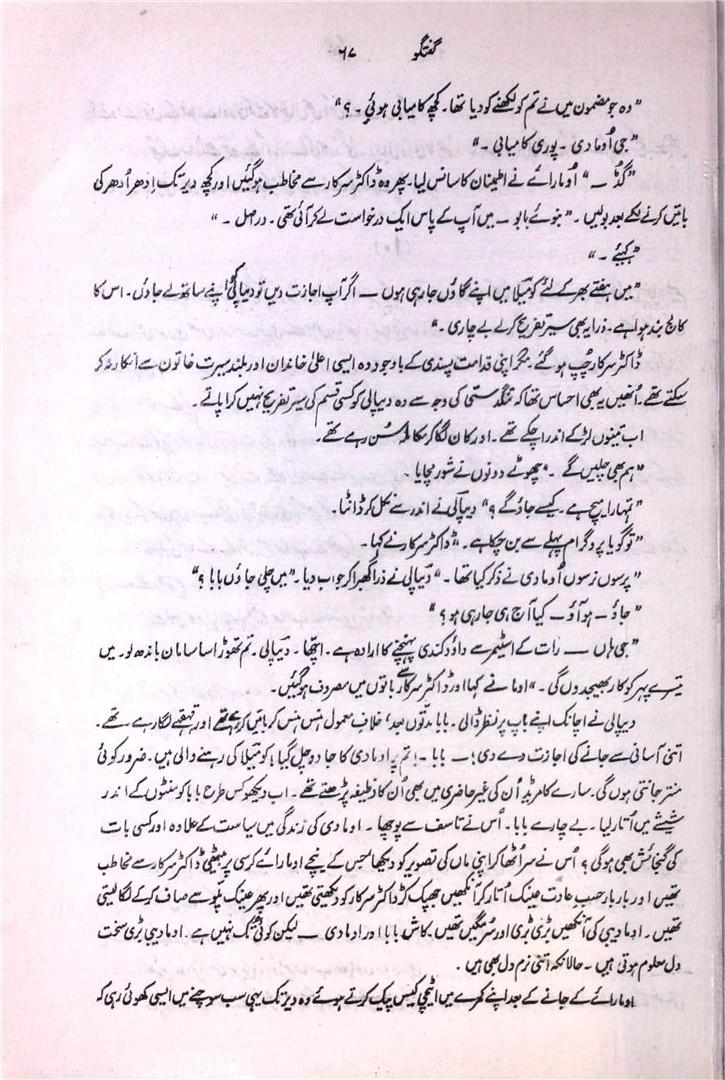 گفتگو ۶۷
”وہ جو مضمون میں نے تم کو لکھنے کو دیا تھا۔ کچھ کامیابی ہوئی۔ ؟“
”جی اُوما دی۔ پوری کامیابی۔“
”گڈ —“ اُوما رائے نے اطمینان کا سانس لیا۔ پھر وہ ڈاکٹر سرکار سے مخاطب ہو گئیں اور کچھ دیر تک اِدھر اُدھر کی
باتیں کرنے کے بعد بولیں۔ ”بنوئے بابو — میں آپ کے پاس ایک درخواست لے کر آئی تھی۔ دراصل۔“
”کہئے۔“
”میں ہفتے بھر کے لئے کومیلا میں اپنے گاؤں جا رہی ہوں — اگر آپ اجازت دیں تو دیپالی کو اپنے ساتھ لے جاؤں۔ اس کا
کالج بند ہوا ہے۔ ذرا یہ بھی سیر تفریح کر لے بے چاری۔“
ڈاکٹر سرکار چُپ ہو گئے۔ مگر اپنی قدامت پسندی کے باوجود وہ ایسی اعلیٰ خاندان اور بلند سیرت خاتون سے انکار نہ کر
سکتے تھے۔ اُنھیں یہ بھی احساس تھا کہ تنگدستی کی وجہ سے وہ دیپالی کو کسی قسم کی سیر تفریح نہیں کرا پاتے
اب تینوں لڑکے اندر آ چکے تھے۔ اور کان لگا کر مکالمہ سُن رہے تھے۔
”ہم بھی چلیں گے۔“ چھوٹے دونوں نے شور مچایا۔
”تمہارا میچ ہے۔ کیسے جاؤ گے؟“ دیپالی نے اندر سے نکل کر ڈانٹا۔
”تو گویا پروگرام پہلے سے بن چکا ہے۔“ ڈاکٹر سرکار نے کہا۔
”پرسوں نرسوں اُوما دی نے ذکر کیا تھا۔“ دیپالی نے ذرا گھبرا کر جواب دیا۔ ”میں چلی جاؤں بابا؟“
”جاؤ۔ ہو آؤ۔ کیا آج ہی جا رہی ہو؟“
”جی ہاں — رات کے اسٹیمر سے داؤد کندی پہنچنے کا ارادہ ہے۔ اچھا۔ دیپالی۔ تم تھوڑا سا سامان باندھ لو۔ میں
تیسرے پہر کو کار بھیجد وں گی۔“ اوما نے کہا اور ڈاکٹر سرکار سے باتوں میں مصروف ہو گئیں۔
دیپالی نے اچانک اپنے باپ پر نظر ڈالی۔ بابا مدّتوں بعد، خلافِ معمول ہنس ہنس کر باتیں کر رہے تھے اور قہقہے لگا رہے تھے۔
اتنی آسانی سے جانے کی اجازت دے دی! — بابا۔! تم پر اوما دی کا جادو چل گیا! کومیلا کی رہنے والی ہیں۔ ضرور کوئی
منتر جانتی ہوں گی۔ سارے کامریڈ اُن کی غیر حاضری میں بھی اُن کا وظیفہ پڑھتے تھے۔ اب دیکھو کس طرح بابا کو منٹوں کے اندر
شیشے میں اُتار لیا۔ بے چارے بابا۔ اُس نے تاسف سے پوچھا۔ اوما دی کی زندگی میں سیاست کے علاوہ اور کسی بات
کی گنجائش بھی ہو گی؟ اُس نے سر اُٹھا کر اپنی ماں کی تصویر کو دیکھا جس کے نیچے اوما رائے کرسی پر بیٹھی ڈاکٹر سرکار سے مخاطب
تھیں اور بار بار حسبِ عادت عینک اُتار کر آنکھیں جھپک کر ڈاکٹر سرکار کو دیکھتی تھیں اور پھر عینک پلّو سے صاف کر کے لگا لیتی
تھیں۔ اوما دیبی کی آنکھیں بڑی بڑی اور سرمگیں تھیں۔ کاش بابا اور اوما دی — لیکن کوئی تُک نہیں ہے۔ اوما دیبی بڑی سخت
دل معلوم ہوتی ہیں۔ حالانکہ اتنی نرم دل بھی ہیں۔
اوما رائے کے جانے کے بعد اپنے کمرے میں اٹیچی کیس پیک کرتے ہوئے وہ دیر تک یہی سب سوچنے میں ایسی کھوئی رہی کہ